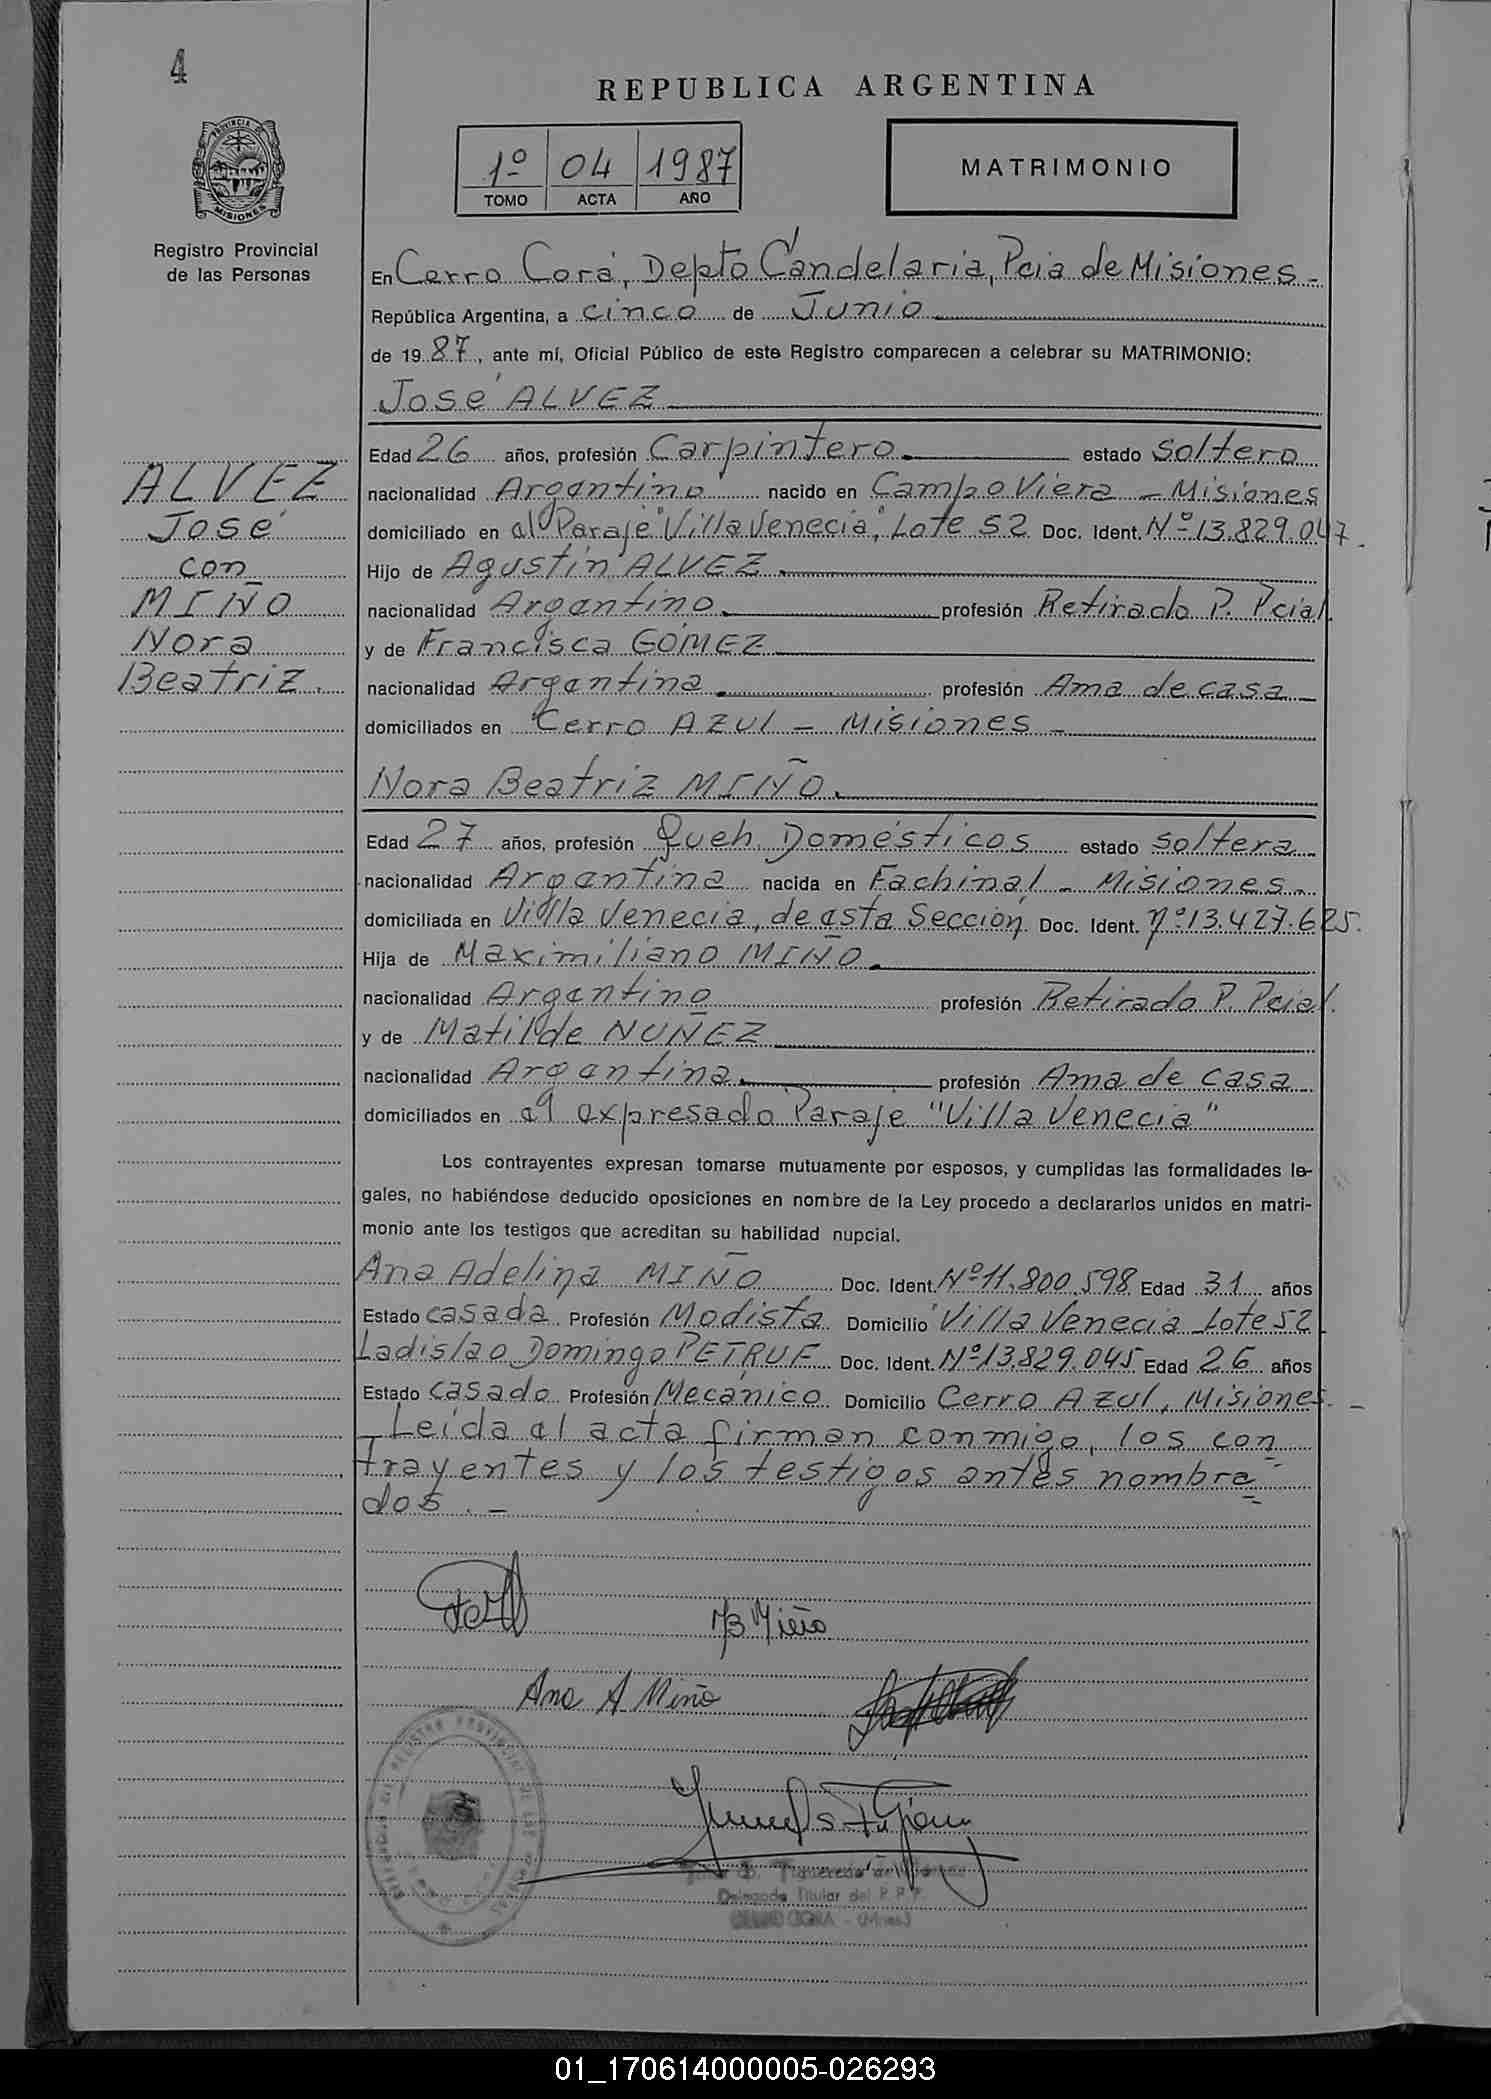 4
REPUBLICA ARGENTINA
PROVINCIA DE
MISIONES
Registro Provincial
de las Personas
1º 04 1987
TOMO ACTA AÑO
MATRIMONIO
En Cerro Corá, Depto Candelaria, Pcia de Misiones -
República Argentina, a cinco de Junio
de 19 87, ante mí, Oficial Público de este Registro comparecen a celebrar su MATRIMONIO:
José ALVEZ
Edad 26 años, profesión Carpintero. estado soltero
nacionalidad Argentino nacido en Campo Viera - Misiones
domiciliado en el Paraje "Villa Venecia", Lote 52 Doc. Ident. Nº 13.829.047.
Hijo de Agustín ALVEZ.
nacionalidad Argentino. profesión Retirado P. Pcial
y de Francisca GÓMEZ
nacionalidad Argentina. profesión Ama de casa
domiciliados en Cerro AZUL - Misiones -
ALVEZ
José
con
MIÑO
Nora
Beatriz.
Nora Beatriz MIÑO.
Edad 27 años, profesión Queh. Domésticos estado soltera
nacionalidad Argentina nacida en Fachinal - Misiones.
domiciliada en Villa Venecia, de esta Sección Doc. Ident. Nº 13.427.625.
Hija de Maximiliano MIÑO.
nacionalidad Argentino profesión Retirado P. Pcial.
y de Matilde NUÑEZ
nacionalidad Argentina. profesión Ama de casa
domiciliados en el expresado Paraje "Villa Venecia"
Los contrayentes expresan tomarse mutuamente por esposos, y cumplidas las formalidades le-
gales, no habiéndose deducido oposiciones en nombre de la Ley procedo a declararlos unidos en matri-
monio ante los testigos que acreditan su habilidad nupcial.
Ana Adelina MIÑO Doc. Ident. Nº 11.800.598 Edad 31 años
Estado casada Profesión Modista Domicilio Villa Venecia Lote 52
Ladislao Domingo PETRUF Doc. Ident. Nº 13.829.045 Edad 26 años
Estado casado Profesión Mecánico Domicilio Cerro AZUL, Misiones. -
Leída el acta firman conmigo, los con
trayentes y los testigos antes nombra
dos. -
NB Miño
Ana A Miño
Delegada Titular del R.P.P.
CERRO CORA - (Mnes)
01_170614000005-026293